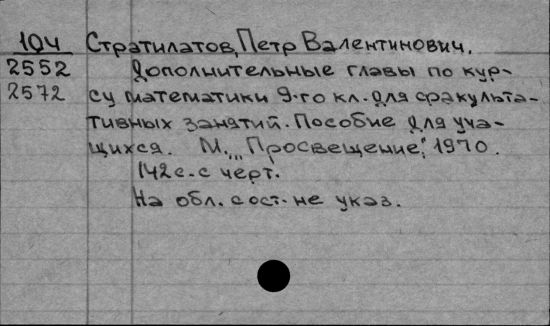 104 Стратилатов, Петр Валентинович.
2552 Дополнительные главы по кур-
2572 су математики 9-го кл. для факульта-
тивных занятий. Пособие для уча-
щихся. М., "Просвещение", 1970.
142 с. с черт.
На обл. сост. не указ.